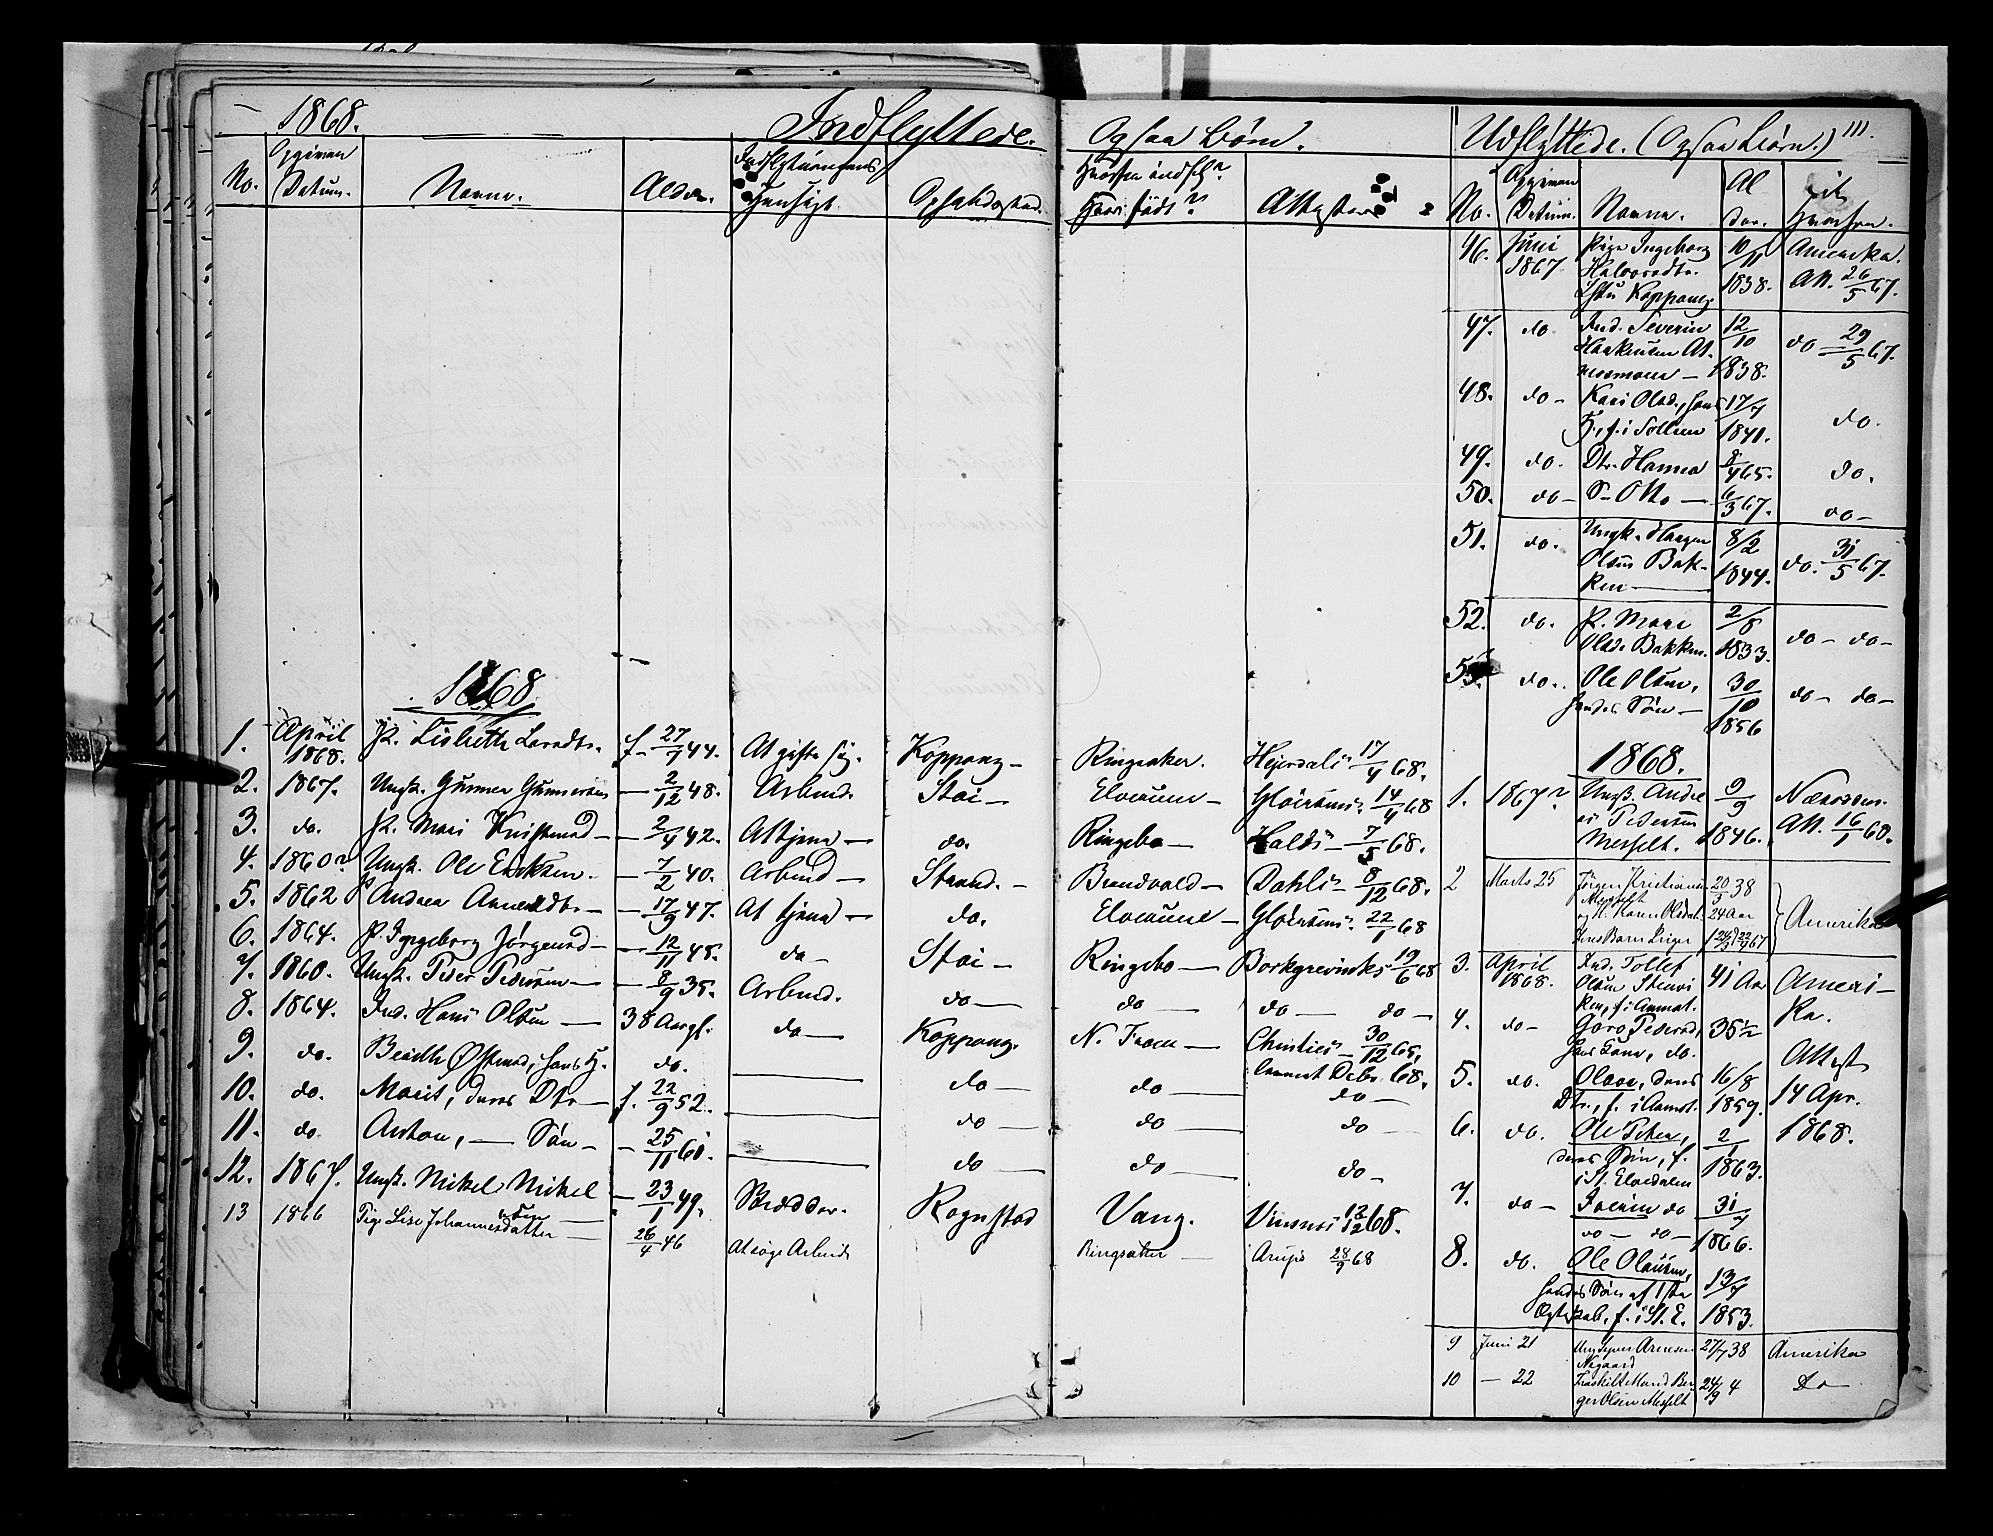 1868. Indflyttede. Ogsaa Børn. Udflyttede. (Ogsaa Børn.) 111.
No. Opgiven Datum. Navne. Alder. Indflytningens Hensigt. Opholdssted. Hvorfra indfl.? Hvor født? Attester
No. Opgiven Datum. Navne. Al der. Hvorhen.
46. Juni 1867 Pige Ingeborg 10/11 Amerika.
Halvorsdtr. 1838. Att. 26/5 67.
Koppang
47. do Ind. Severin 12/10 do 29/5 67.
Haakensen At-
nesmoen — 1838.
48. do — Kari Olsd., hans 17/7 do.
H., f. i Sollien 1841.
49. do. Dtr. Hanna 8/4 65. do.
50. do — S. Otto — 6/3 67. do —
51. do. Ungk. Haagen 8/2 do. 31/5 67.
Olsen Bak- 1844.
ken —
52. do. P. Mari 2/8 do — do —
Olsdr. Bakken. 1833.
53. do. Ole Olsen, 30/10 do — do —
hendes Søn — 1856
1868.
1. April 1868. P. Lisbeth Larsdtr. f. 27/9 44. At gifte sig. Koppang — Ringsaker. Hejerdals 17/4 68.
2. 1867. Ungk. Gunner Gunnersen — 2/12 48. Arbeid. Stai — Elverum — Gløersens 14/4 68
3. do. P. Mari Kristensd — 2/4 42. At tjene — do. Ringebo — Halds — 7/5 68.
4. 1860? Ungk. Ole Eriksen. — 7/2 40. Arbeid — Strand. — Brandvold — Dahls — 8/12 68.
5. 1862 P. Andrea Arnesdtr. — 17/9 47. At tjene — do. Elverum — Gløersens 22/1 68
6. 1864. P. Ingeborg Jørgensd — 12/11 45. do — Stai — Ringebo — Borkgrevinks 19/6 68
7. 1860. Ungk. Peder Pedersen — 8/9 35. Arbeid. do — do — do — do —
8. 1864. Ind. Hans Olsen — 38 Aar gl. do — Koppang. N. Fron — Christies — 30/12 65,
9. do. Berith Østensd, hans H. do. — do — do — Debr. 68.
10. do. Marit, deres Dtr — f. 22/9 52. — do — do — do —
11. do Anton, — Søn — 25/11 60. — do — do — do —
12. 1867. Ungk. Mikel Mikel — 23/1 49. Rognstad Vang. 12/12 68.
sen
13 1866 Pige Lise Johannesdatter — 26/4 46 At søge Arbeid Ringsaker — Arups 28/9 68
1868.
1. 1867? Ungk. Andre 9/9
as Pedersen 1846. Att. 16/1 68.
Messelt.
2 Marts 25 Jørgen Kristiansen 20/3 38 Amerika
Messelt
og H. Karen Olsdat. 24 Aar
deres Barn Birger
3. April 1868. Ind. Tollef 41 Aar Ameri-
Olsen
ken, f. i Aamot. ka.
4. do — Goro Pedersd, 35 1/2
hans Kone, do. Attest
5. do. Olava, deres 16/8 14 Apr.
Dtr., f. i Aamot. 1859. 1868.
6. do. Ole Peter, 2/1
deres Søn, f. 1863.
i St. Elvedalen
7. do — do 31/7
do — do — 1866.
8. do. Ole Olausen, 13/7
hendes Søn af 1ste
Ægteskab, f. i St. E. 1853.
9 Juni 21 Arnesen 27/7 38 Amerika
Nygaard
10 — 22 Fraskilt Mand Ber 24/9 4 Do
ger Olsen Messelt